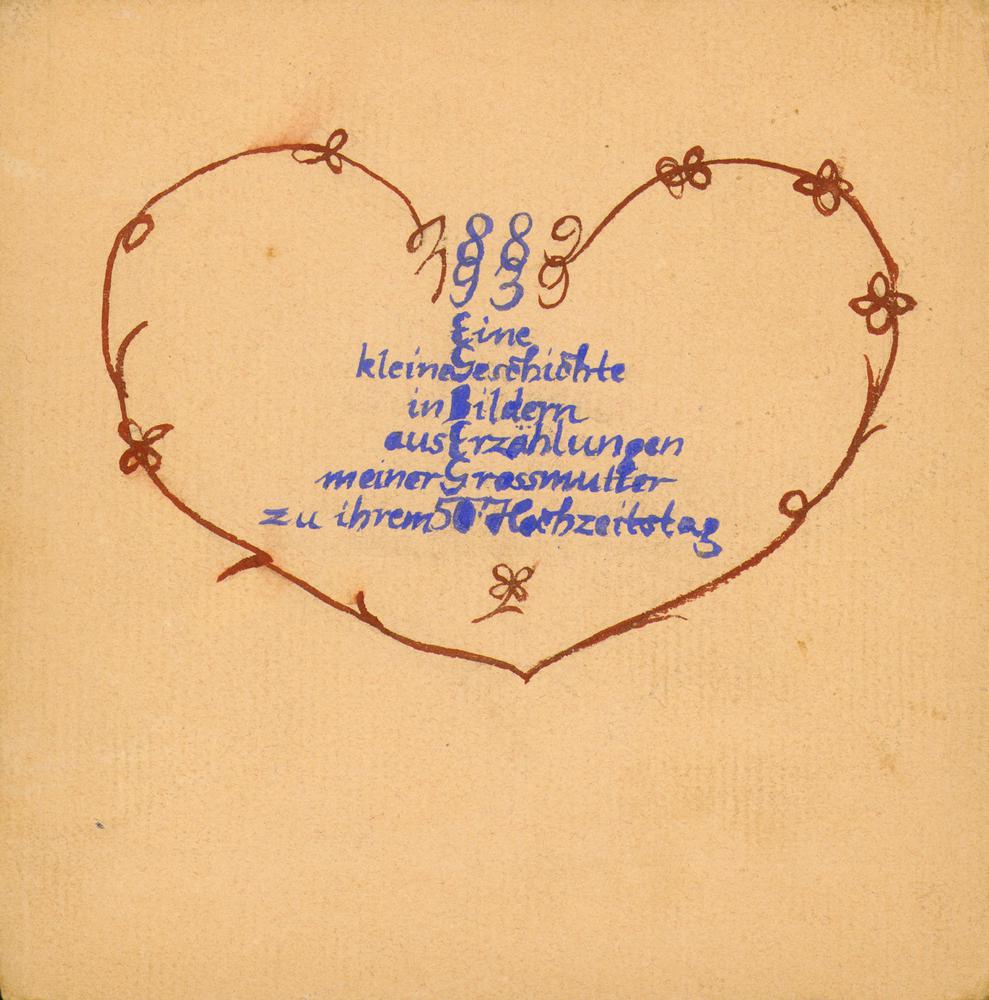 1889
1939
Eine
kleine Geschichte
in Bildern
aus Erzählungen
meiner Grossmutter
zu ihrem 50 Hochzeitstag